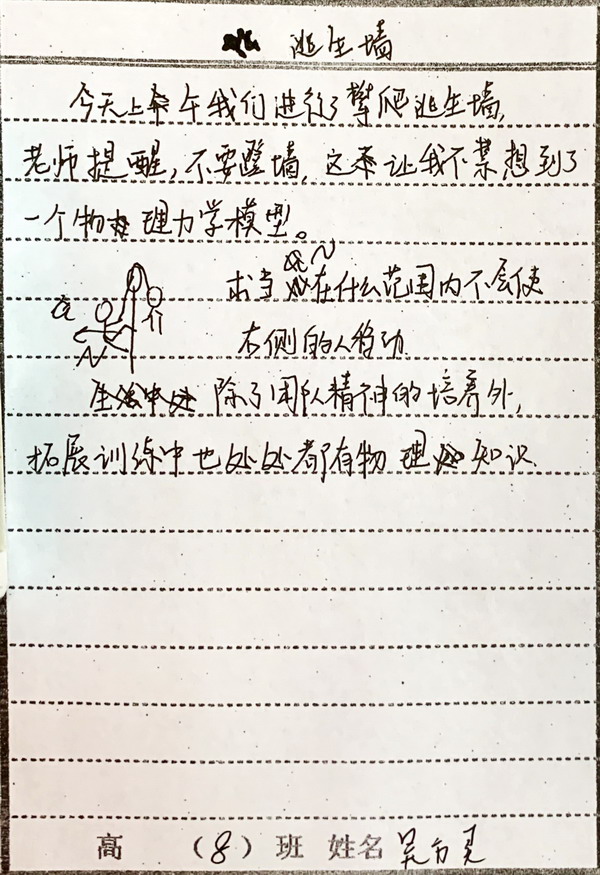 逃生墙
今天上午我们进行了攀爬逃生墙,
老师提醒,不要蹬墙,这不让我不禁想到了
一个物理力学模型。
N
求当 在什么范围内不会使
a
右侧的人移动.
N
除了团队精神的培养外,
拓展训练中也处处都有物理知识.
高 (8)班 姓名 吴